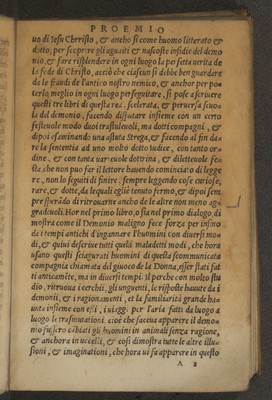 PROEMIO
uo di Iesu Christo, & anchò si come huomo litterato &
dotto, per scoprire gli aguaiti & nascoste insidie del demo
nio, & fare risplendere in ogni luogo la perfetta uerita de
la fede di Christo, acciò che ciascun si debbe ben guardare
da le fraudi de l'antico nostro nemico, & anchor per po
terlo, meglio in ogni luogo perseguitare, si pose a scriuere
questi tre libri di questa rea, scelerata, & peruersa scuo
la del demonio, facendo disputare insieme con un certo
festeuole modo duoi trastuleuoli, ma dotti compagni, &
dipoi esaminando una astuta strega, & facendo al fin da
re la sententia ad uno molto dotto Iudice, con tanto or
dine, & con tanta uarieuole dotrina, & diletteuole fe
sta, che non puo far il lettore hauendo cominciato di legge
re, non lo seguiti di finire, sempre leggendo cose curiose,
rare, & dotte, da lequali egli è tenuto fermo, & dipoi sem
pre sperãdo di ritrouarne anchò de le altre non meno ag
gradeuoli. Hor nel primo libro, o sia nel primo dialogo, di
mostra come il Demonio maligno fece forza per insino
da i tempi antichi d'ingannare l'huomini con diuersi mo
di, & quiui descriue tutti quelli maladetti modi, che hora
usano questi sciagurati huomini di questa scommunicata
compagnia chiamata del giuoco de la Donna, esser stati fat
ti anticamente, ma in diuersi tempi. Il perche con molto stu
dio, ritruoua i cerchi, gli unguenti, le risposte hauute da i
demonii, & i ragionamenti, et la familiarità grande ha
uuta insieme con essi, i uiaggi per l'aria fatti da luogo a
luogo le trasmutationi. cioè che faceua apparere il demo
nio fussero cãbiati gli huomini in animali senza ragione,
& anchora in uccelli, & cosi dimostra tutte le altre illu-
sioni, & imaginationi, che hora ui fa apparare in questo
A 2